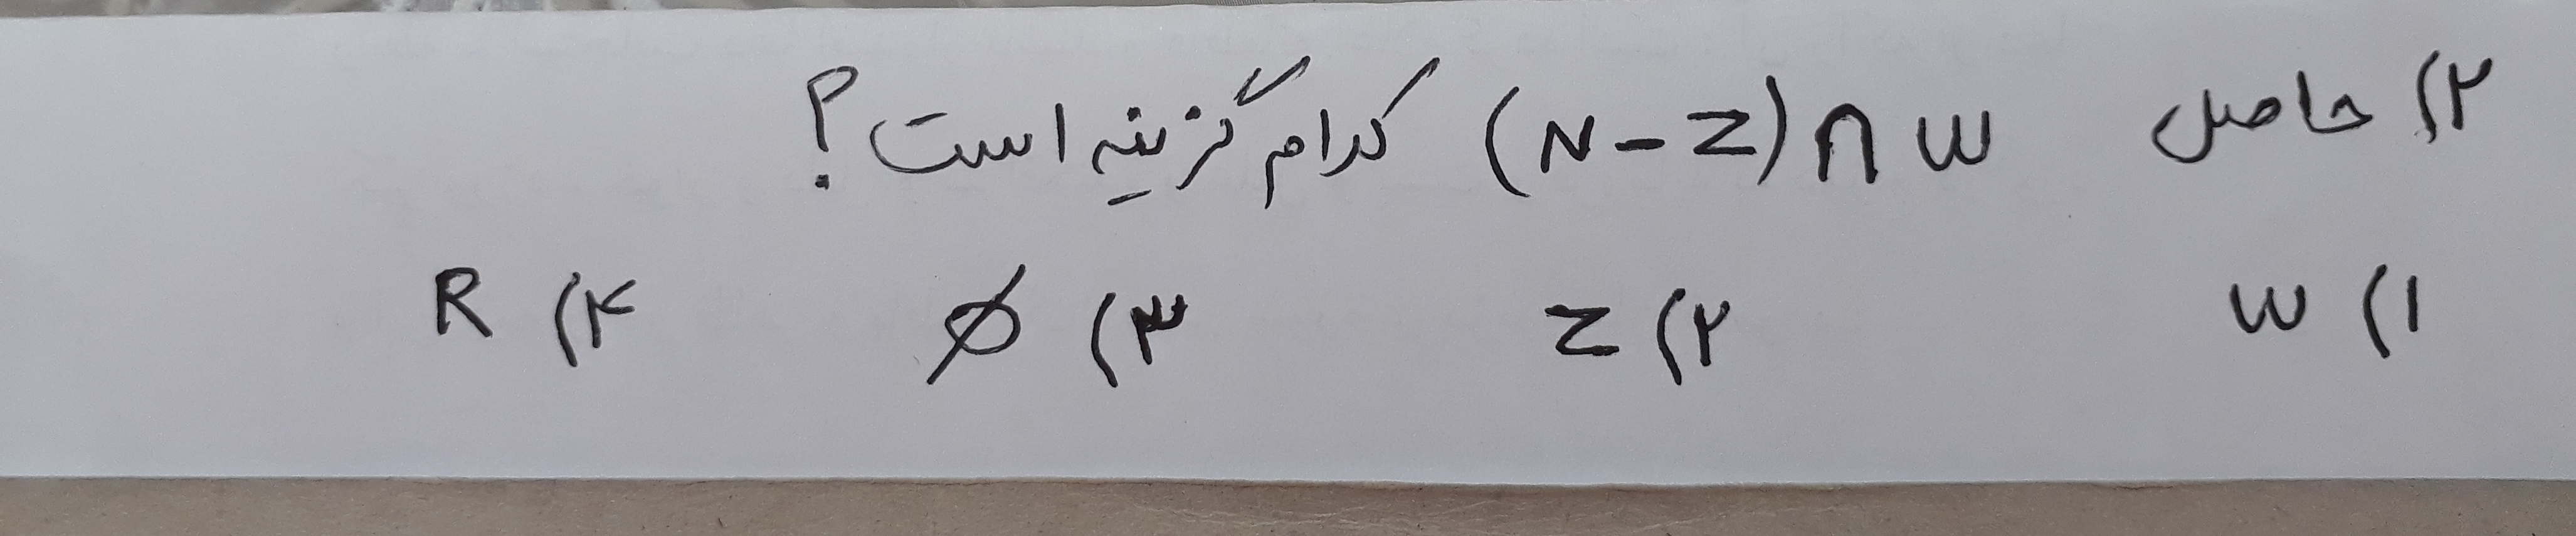 ۲) حاصل (N-Z)∩W کدام گزینه است؟
۱) W ۲) Z ۳) ∅ ۴) R